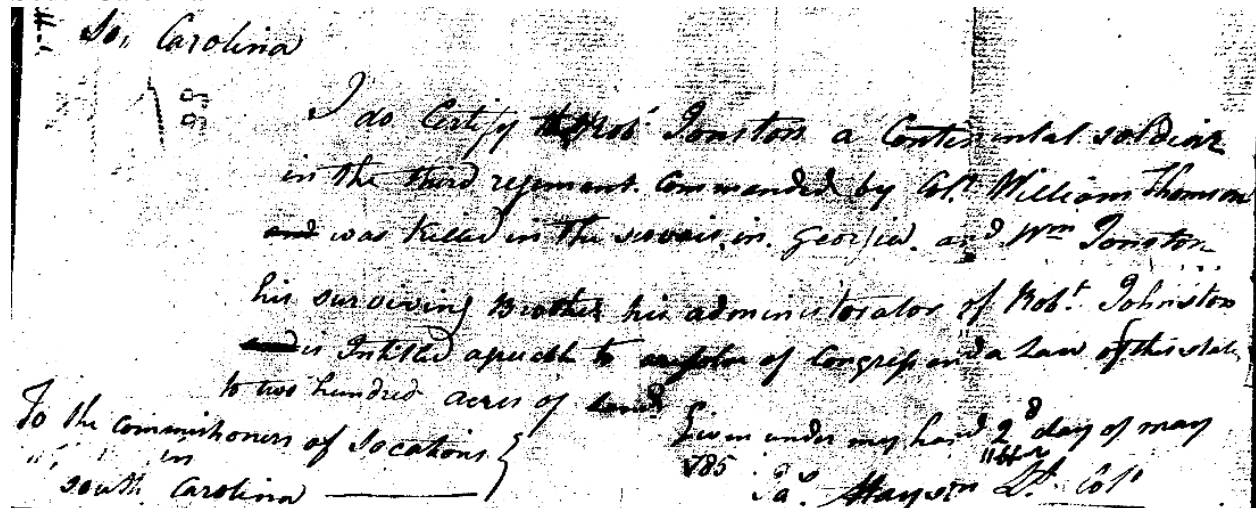 So. Carolina
I do Certify Robt Jonston a Continental soldier
in the third regiment. Commanded by Col. William Thomson
and was killed in the in Georgia. and Wm Jonston
his surviving Brother his administorator of Robt. Johnston
is Intitled to of Congress and a Law of this state
to two hundred acres of Land
Given under my hand 2d day of may
785
To the Commishoners of Locations
in
South Carolina
Ja. Mayson Lt. Col